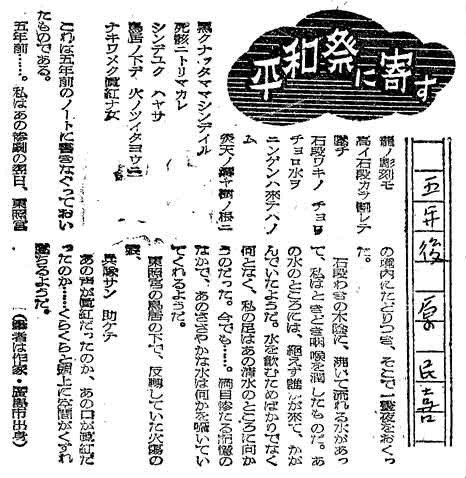 平和祭に寄す
五年後 原民喜
龍ノ彫刻モ
高イ石段カラ割レテ
墜チ
石段ワキノ チョロ
チョロ水ヲ
ニンゲンハ来テハノ
ム
炎天ノ溝ヤ樹ノ根ニ
黒クナッタママシンデイル
死骸ニトリマカレ
シンデユク ハヤサ
鳥居ノ下デ 火ノツイタヨウニ
ナキワメク眞紅ナ女
これは五年前のノートに書きなぐっておい
たものである。
五年前……。私はあの惨劇の翌日、東照宮
の境内にたどりつき、そこで一昼夜をおくっ
た。
石段わきの木陰に、湧いて流れる水があっ
て、私はときどき咽喉を潤したものだ。あ
の水のところには、絶えず誰かが来て、かが
んでいたようだ。水を飲むためばかりでなく
何となく、私の足はあの清水のところに向か
うのだった。今でも……満目惨たる記憶の
なかで、あのささやかな水は何かを囁いてい
てくれるようだ。
東照宮の鳥居の下で、反転していた火傷の
娘。
兵隊サン 助ケテ
あの声が眞紅だったのか、あの口が眞紅だ
ったのか……くらくらと頭上に空間がくずれ
墜ちるようだ。
（筆者は作家・廣島市出身）